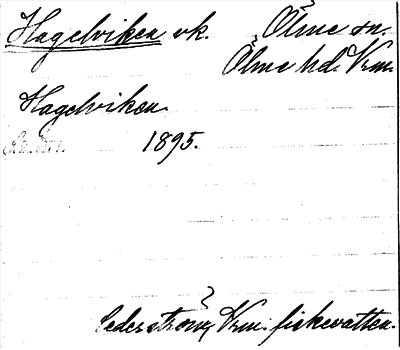 Hagelviken vk. Ölme sn.
Ölme hd. Vrm.
Hagelviken
1895.
Cederström, Vrm. fiskevatten.